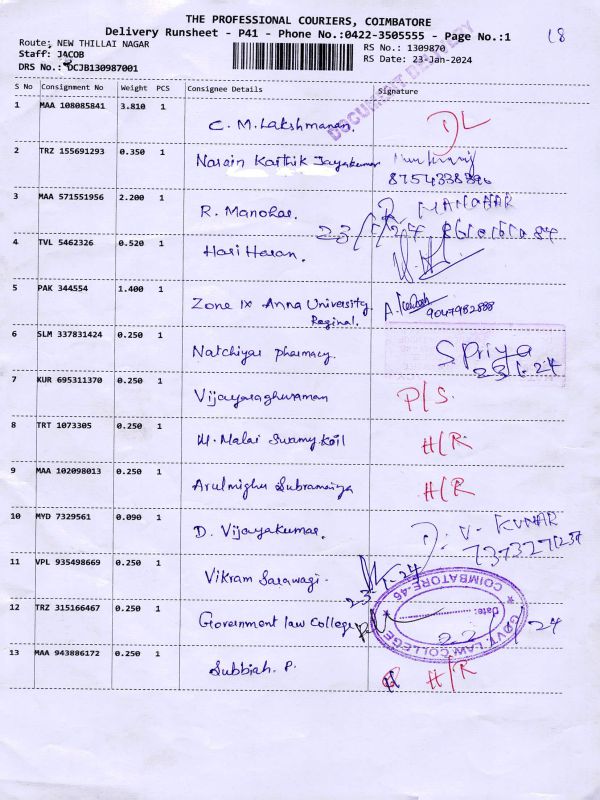 THE PROFESSIONAL COURIERS, COIMBATORE
Delivery Runsheet - P41 - Phone No.:0422-3505555 - Page No.:1
18
Route: NEW THILLAI NAGAR
RS No.: 1309870
Staff: JACOB
RS Date: 23-Jan-2024
DRS No.: DCJB130987001
DOCUMENT DELIVERY
S No Consignment No Weight PCS Consignee Details Signature
1 MAA 108085841 3.810 1 C. M. Lakshmanan. DL
2 TRZ 155691293 0.350 1 Narain Karthik Jayakumar
8754338896
3 MAA 571551956 2.200 1 R. Manohar. R. MANOHAR
23/1/24
4 TVL 5462326 0.520 1 Hari Haran.
5 PAK 344554 1.400 1 Zone IX Anna University Reginal. 9047982888
6 SLM 337831424 0.250 1 Natchiyar pharmacy. S. Priya
23-1-24
7 KUR 695311370 0.250 1 Vijayaraghuraman P/S.
8 TRT 1073305 0.250 1 M. Malai Swamy Koil H/R
9 MAA 102098013 0.250 1 Arulmighu Subramaniya H/R
10 MYD 7329561 0.090 1 D. Vijayakumar. D. V. KUMAR
11 VPL 935498669 0.250 1 Vikram Sarawagi. 23-1-24
12 TRZ 315166467 0.250 1 Government law College
GOVT. LAW COLLEGE
COIMBATORE-46
Date:
13 MAA 943886172 0.250 1 Subbiah. P. H/R